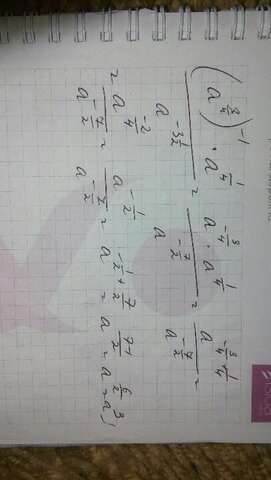 (a^{3/4})^{-1} · a^{1/4} / a^{-3 1/2} = a^{-3/4} · a^{1/4} / a^{-7/2} = a^{-3/4 + 1/4} / a^{-7/2} =
= a^{-2/4} / a^{-7/2} = a^{-1/2} / a^{-7/2} = a^{-1/2 + 7/2} = a^{7-1/2} = a^{6/2} = a^3;